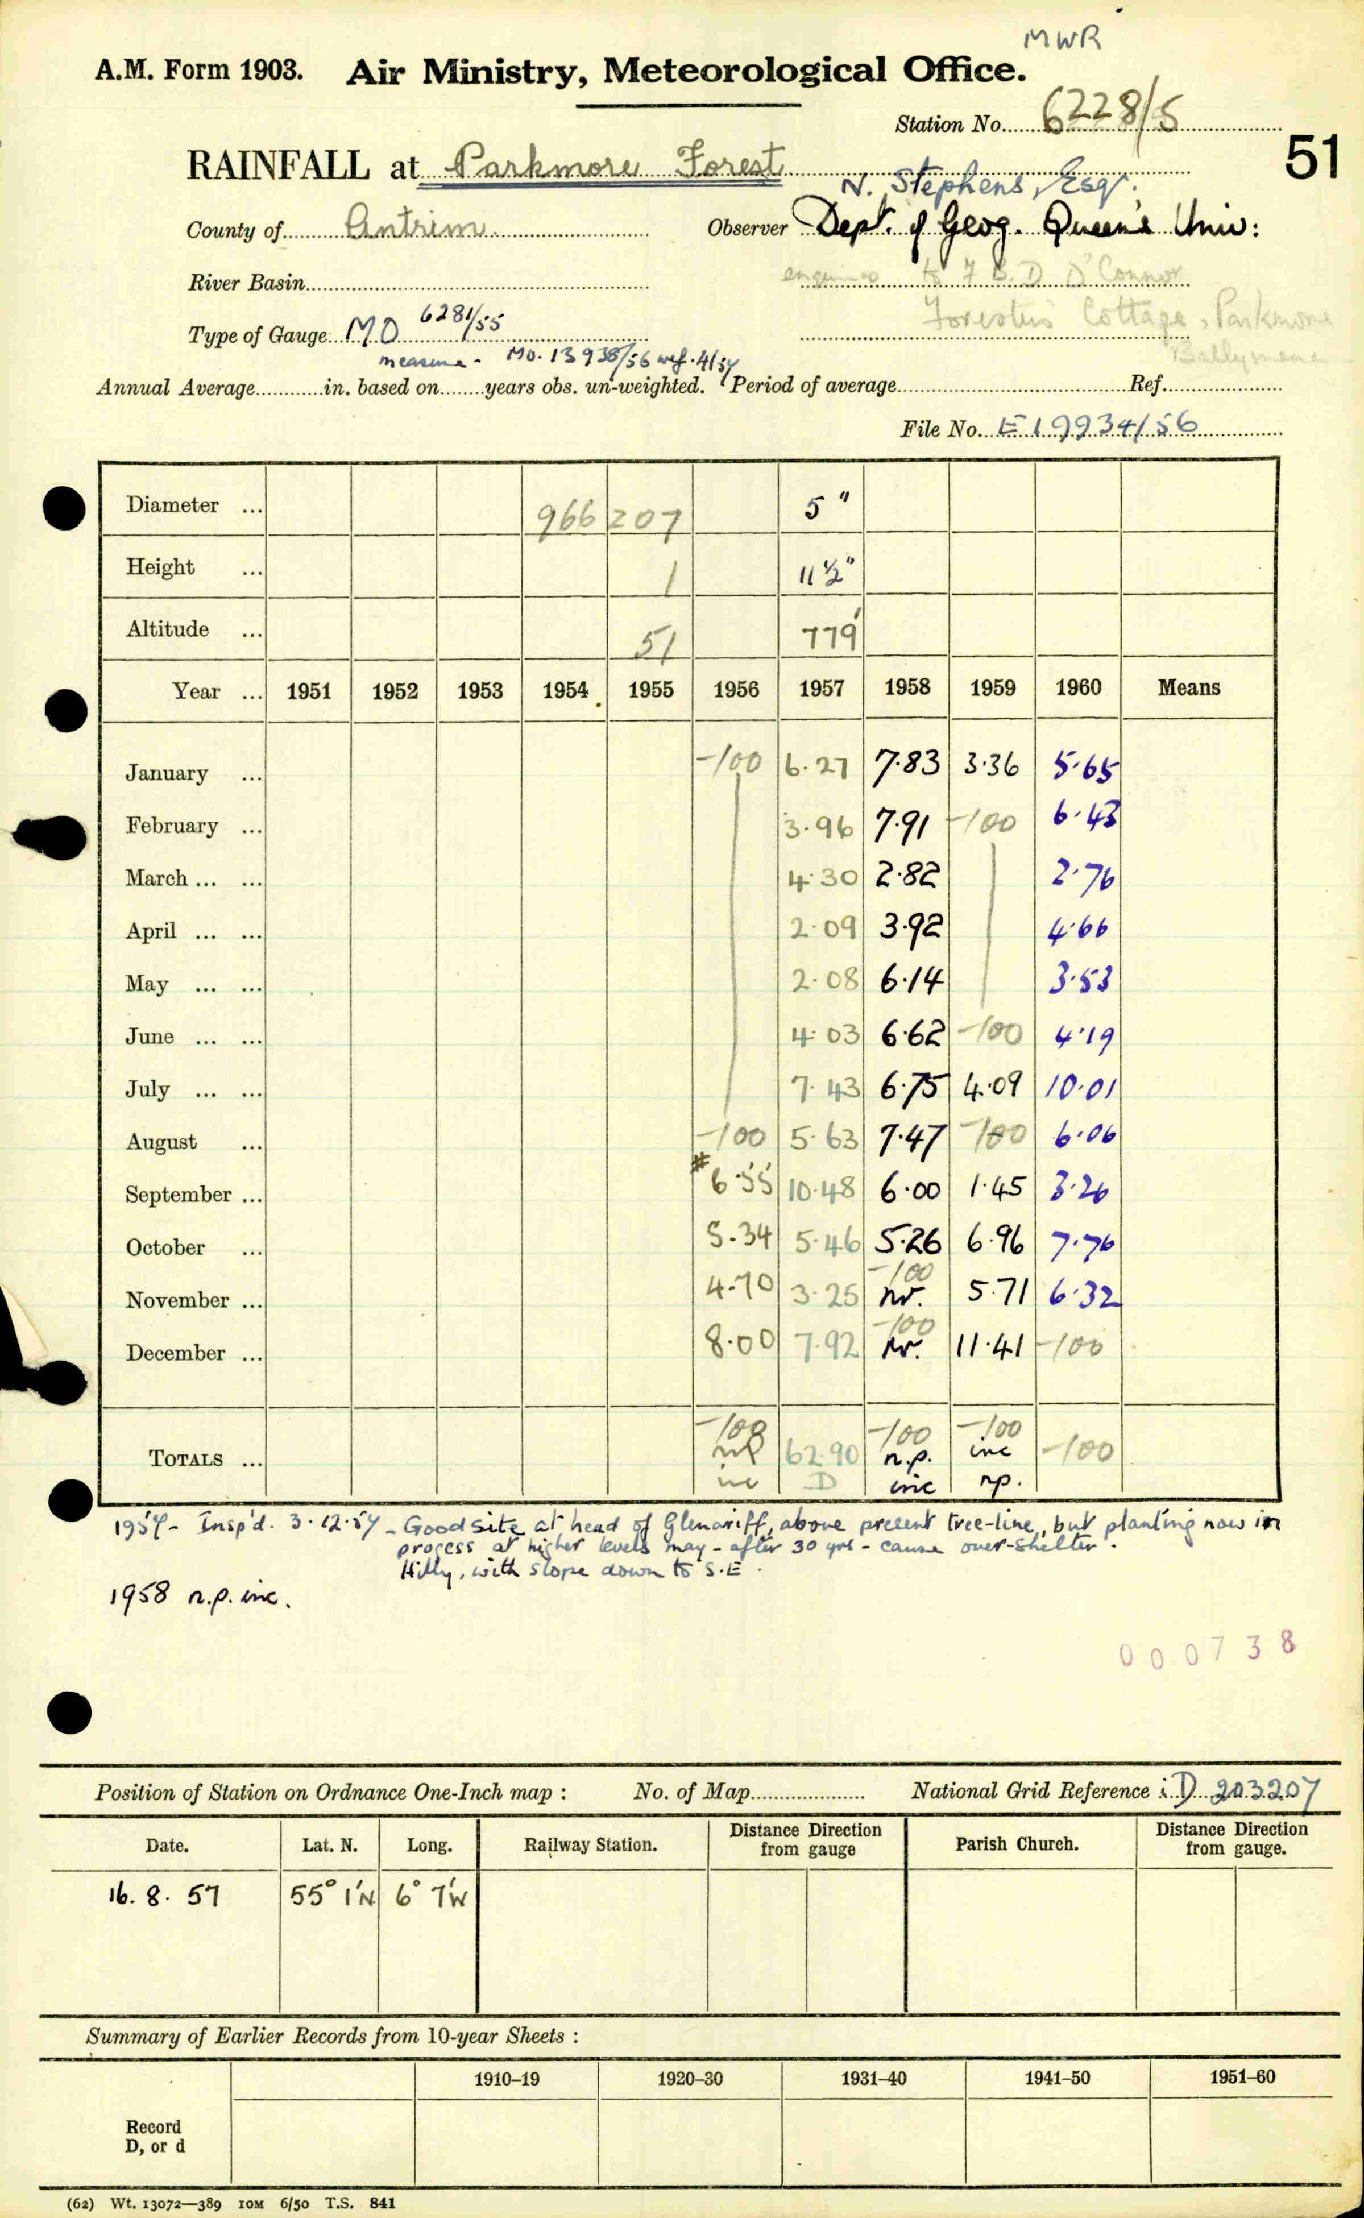 MWR
A.M. Form 1903. Air Ministry, Meteorological Office.
Station No. 6228/5
51
RAINFALL at Parkmore Forest
N. Stephens, Esq.
County of Antrim Observer Dept. of Geog. Queen's Univ:
River Basin enquiries to F B. D. O'Connor
Forester's Cottage, Parkmore
Type of Gauge MO 6281/55
Ballymena
measure - MO. 13938/56 wef. 4/57
Annual Average in. based on years obs. un-weighted. Period of average Ref.
File No. E19934/56
Diameter ... 966 207 5"
Height ... 1 11½"
Altitude ... 51 779'
Year ... 1951 1952 1953 1954 1955 1956 1957 1958 1959 1960 Means
January ... -100 6.27 7.83 3.36 5.65
February ... 3.96 7.91 -100 6.43
March ... ... 4.30 2.82 2.76
April ... ... 2.09 3.92 4.66
May ... ... 2.08 6.14 3.53
June ... ... 4.03 6.62 -100 4.19
July ... ... 7.43 6.75 4.09 10.01
August ... -100 5.63 7.47 -100 6.06
September ... # 6.55 10.48 6.00 1.45 3.26
October ... 5.34 5.46 5.26 6.96 7.76
November ... 4.70 3.25 -100 nr. 5.71 6.32
December ... 8.00 7.92 -100 nr. 11.41 -100
TOTALS ... -100 np inc 62.90 D -100 n.p. inc -100 inc np. -100
1957 - Insp'd. 3.12.57 - Good site at head of Glenariff, above present tree-line, but planting now in
process at higher levels may - after 30 yrs - cause over-shelter.
Hilly, with slope down to S.E.
1958 n.p. inc.
000738
Position of Station on Ordnance One-Inch map : No. of Map National Grid Reference i. D 203207
Date. Lat. N. Long. Railway Station. Distance Direction from gauge Parish Church. Distance Direction from gauge.
16. 8. 57 55° 1'N 6° 7'W
Summary of Earlier Records from 10-year Sheets :
1910–19 1920–30 1931–40 1941–50 1951–60
Record
D, or d
(62) Wt. 13072—389 10M 6/50 T.S. 841